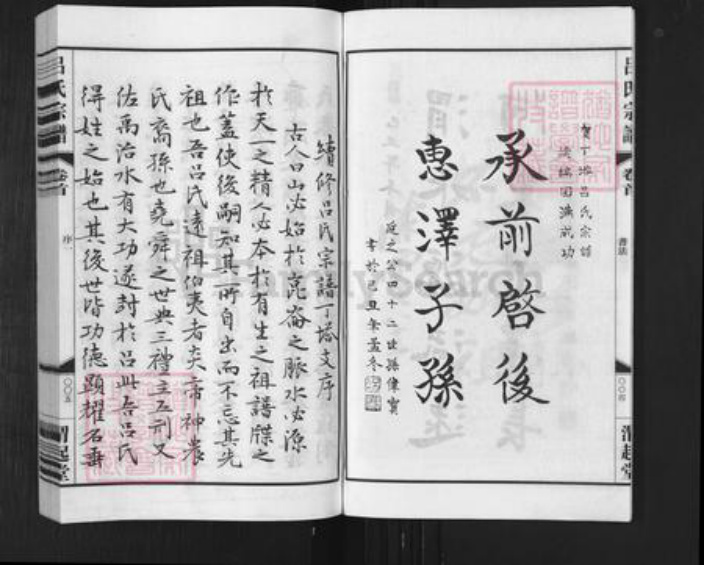 呂氏宗譜 卷首 書法 〇〇四 渭起堂
賀丁塔呂氏宗譜
續編圓滿成功
承前啓後
惠澤子孫
延之公四十二世孫偉寶
書於己丑年孟冬
續修呂氏宗譜丁塔支序
古人曰山必始於崑崙之脈水必源
於天一之精人必本於有生之祖譜牒之
作蓋使後嗣知其所自出而不忘其先
祖也吾呂氏遠祖伯夷者炎帝神農
氏裔孫也堯舜之世典三禮主五刑又
佐禹治水有大功遂封於呂此吾呂氏
得姓之始也其後世皆功德顯耀名垂
呂氏宗譜 卷首 序一 〇〇五 渭起堂
FamilySearch